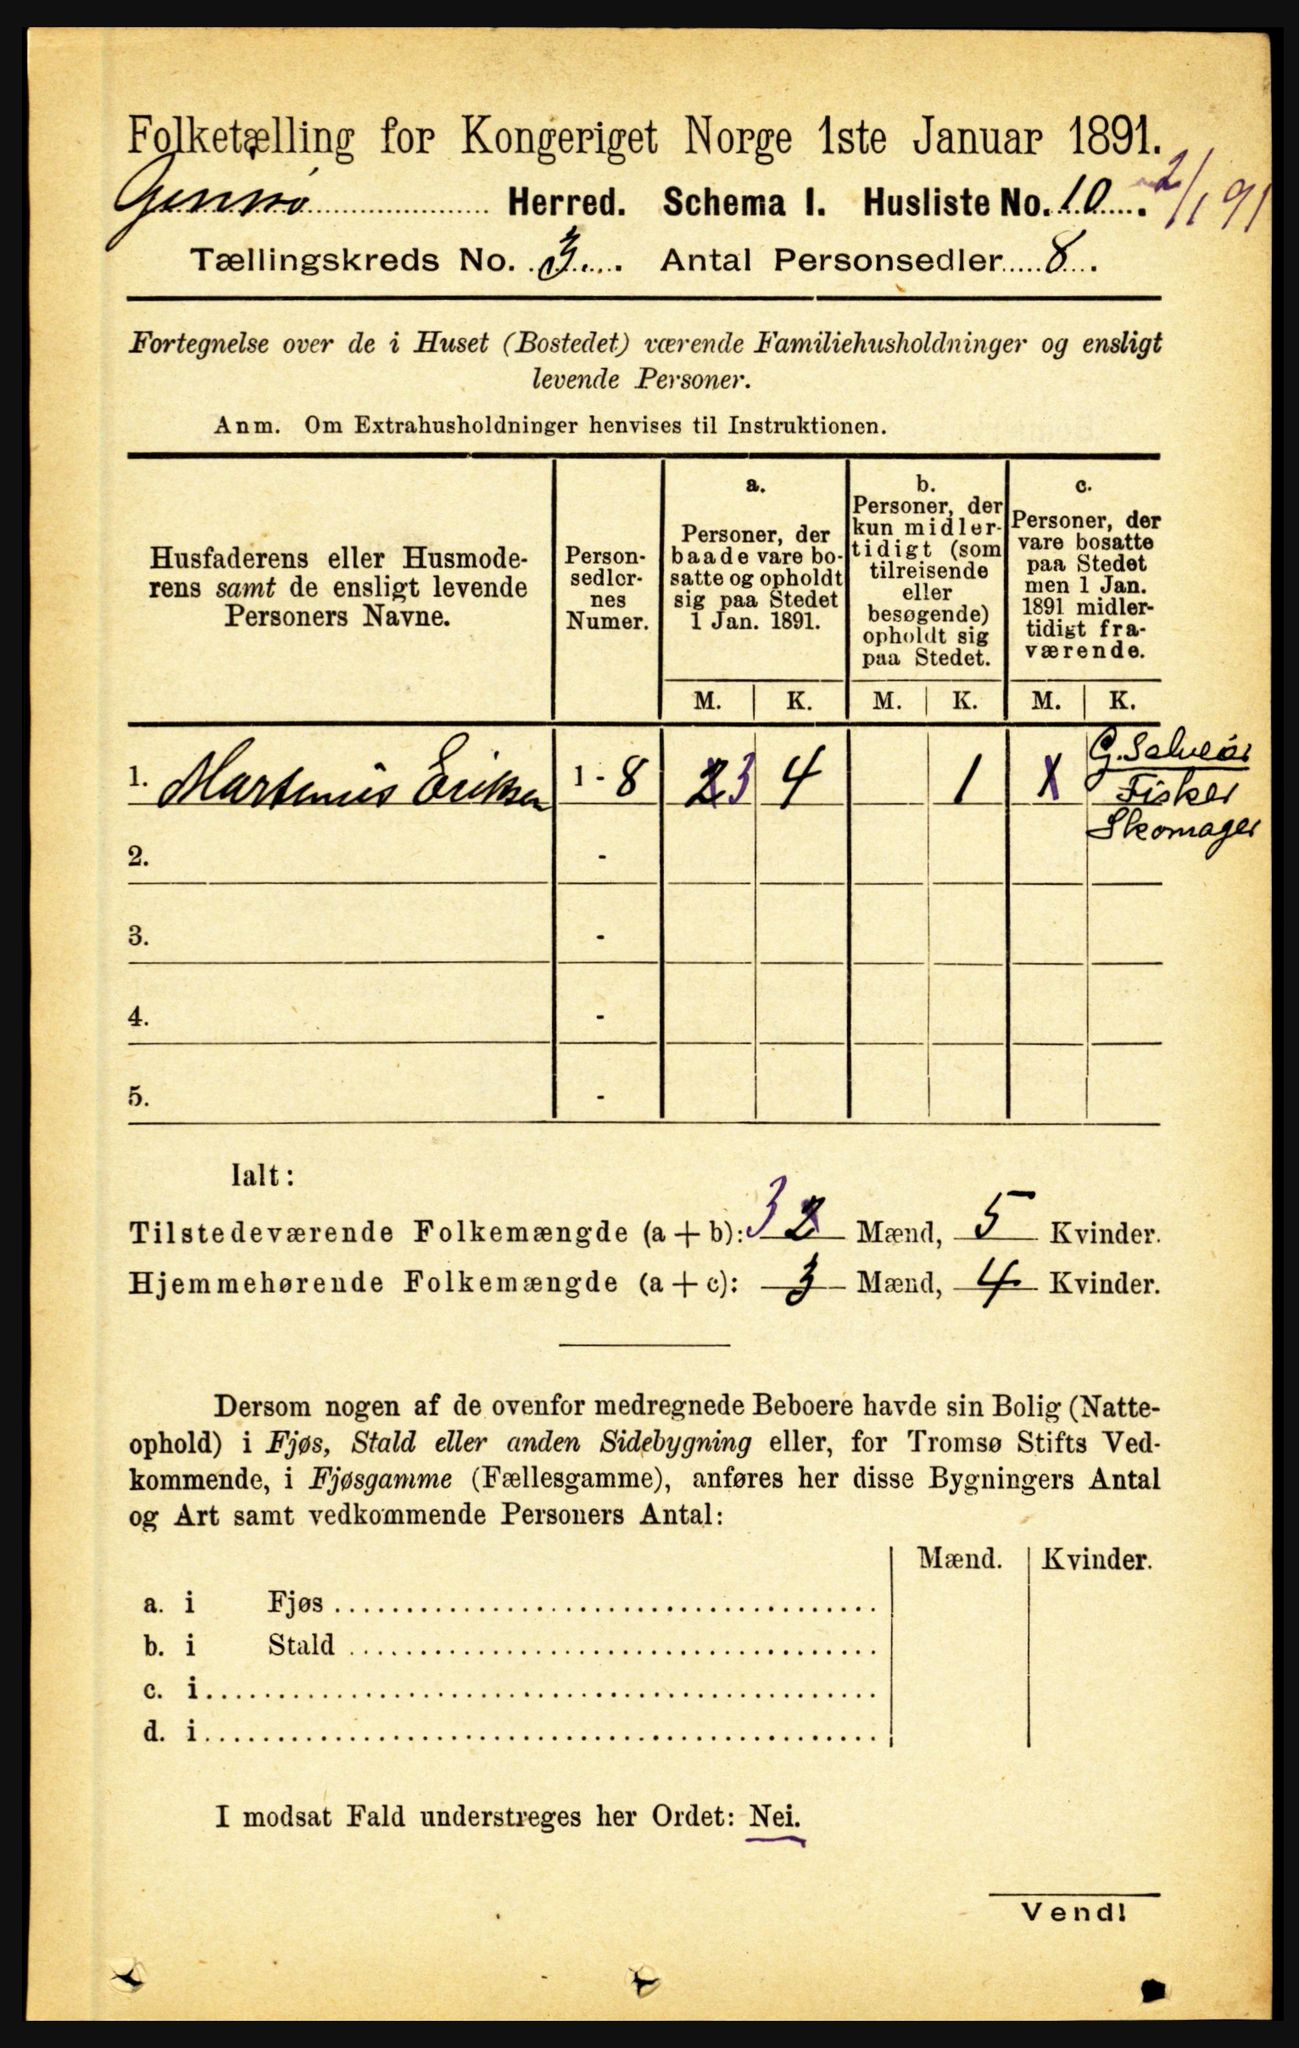 Folketælling for Kongeriget Norge 1ste Januar 1891.
Herred. Schema I. Husliste No. 10. 2/1 91
Tællingskreds No. 3. Antal Personsedler 8.
Fortegnelse over de i Huset (Bostedet) værende Familiehusholdninger og ensligt
levende Personer.
Anm. Om Extrahusholdninger henvises til Instruktionen.
Husfaderens eller Husmode-
rens samt de ensligt levende
Personers Navne.
Person-
sedler-
nes
Numer.
a.
Personer, der
baade vare bo-
satte og opholdt
sig paa Stedet
1 Jan. 1891.
b.
Personer, der
kun midler-
tidigt (som
tilreisende
eller
besøgende)
opholdt sig
paa Stedet.
c.
Personer, der
vare bosatte
paa Stedet
men 1 Jan.
1891 midler-
tidigt fra-
værende.
M. K. M. K. M. K.
1. Martinus Eriksen 1 - 8 2 3 4 1 1 G. Selveier
Fisker
Skomager
2. -
3. -
4. -
5. -
Ialt:
Tilstedeværende Folkemængde (a + b): 3 2 Mænd, 5 Kvinder.
Hjemmehørende Folkemængde (a + c): 3 Mænd, 4 Kvinder.
Dersom nogen af de ovenfor medregnede Beboere havde sin Bolig (Natte-
ophold) i Fjøs, Stald eller anden Sidebygning eller, for Tromsø Stifts Ved-
kommende, i Fjøsgamme (Fællesgamme), anføres her disse Bygningers Antal
og Art samt vedkommende Personers Antal:
Mænd. Kvinder.
a. i Fjøs
b. i Stald
c. i
d. i
I modsat Fald understreges her Ordet: Nei.
Vend!